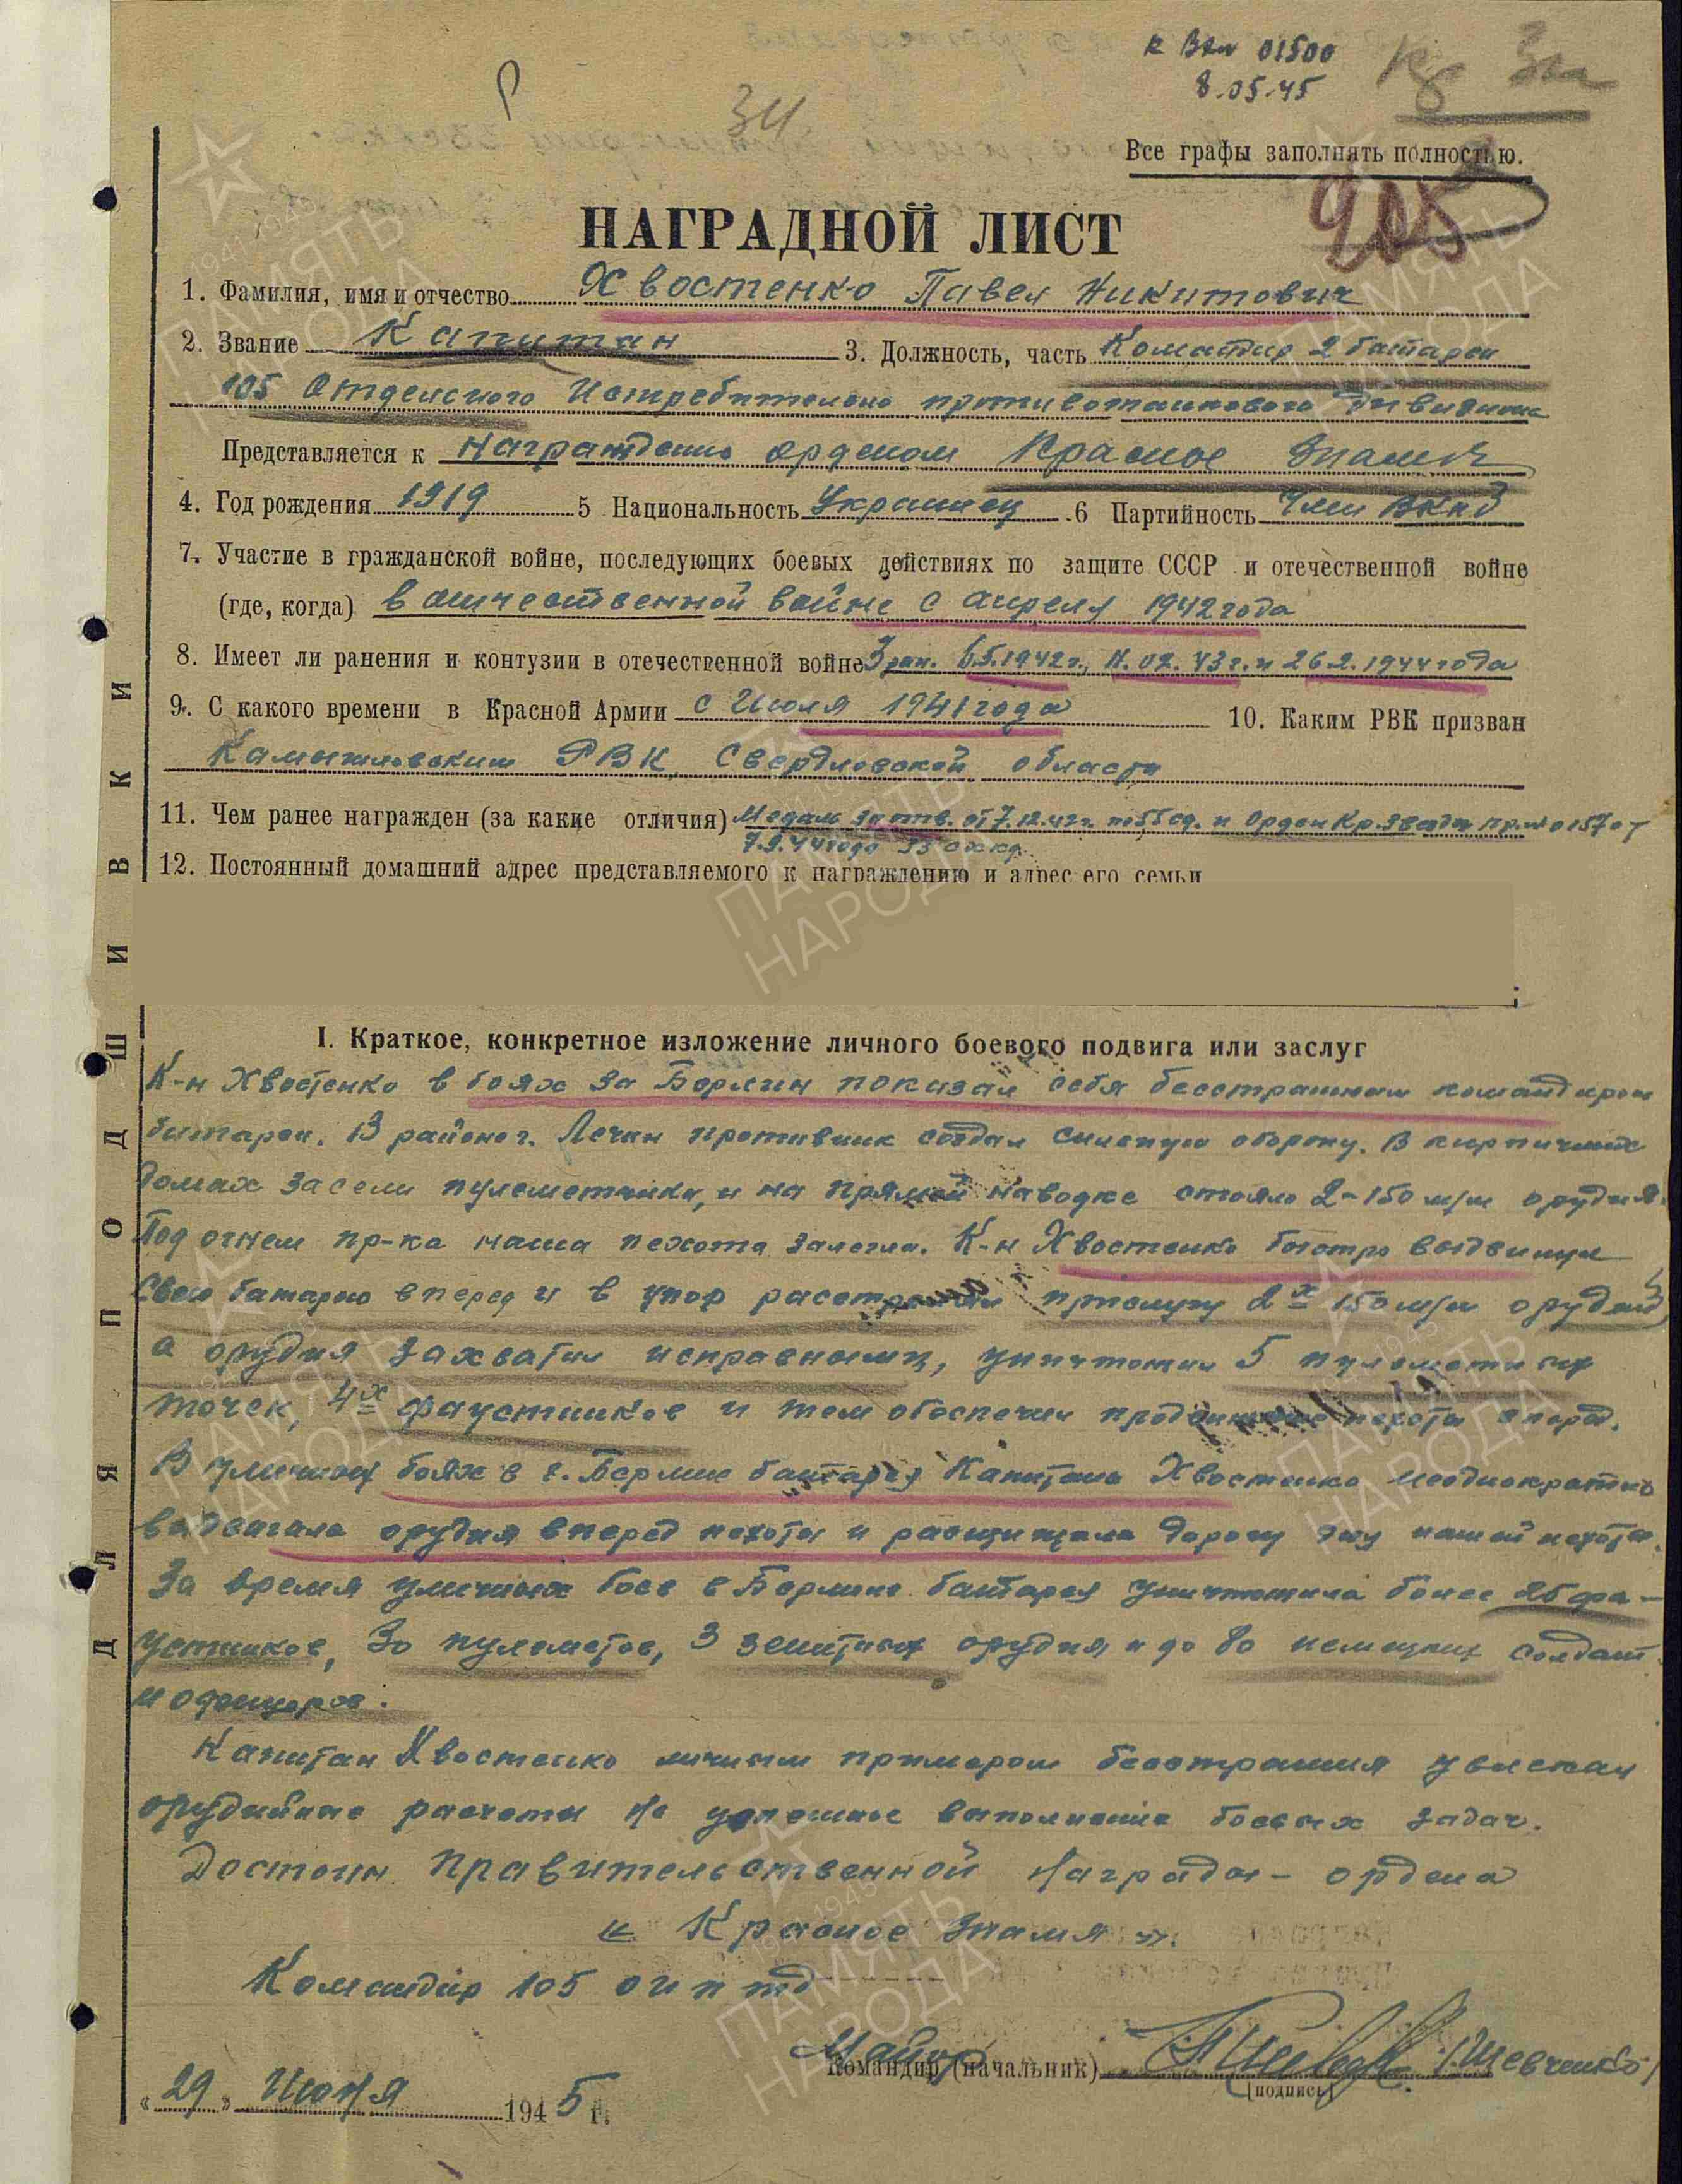 01500
8.05.45
Кр Зн
34
Все графы заполнять полностью.
905
НАГРАДНОЙ ЛИСТ
1. Фамилия, имя и отчество Хвостенко Павел Никитович
2. Звание Капитан 3. Должность, часть Командир 2 батареи
105 Отдельного Истребительно противотанкового дивизиона
Представляется к награждению орденом Красное Знамя
4. Год рождения 1919 5 Национальность Украинец 6 Партийность Член ВКПб
7. Участие в гражданской войне, последующих боевых действиях по защите СССР и отечественной войне
(где, когда) в отечественной войне с апреля 1942 года
8. Имеет ли ранения и контузии в отечественной войне 3 ран. 6.5.1942 г., 11.02.43 г. и 26.2.1944 года
9. С какого времени в Красной Армии с Июля 1941 года 10. Каким РВК призван
Камышловским РВК, Свердловской области
11. Чем ранее награжден (за какие отличия) Медаль за отв. от 7.12.42г. по 55 сд. и Орден Кр. Звезда пр. № 0157 от
7.9.44 года
12. Постоянный домашний адрес представляемого к награждению и адрес его семьи
I. Краткое, конкретное изложение личного боевого подвига или заслуг
К-н Хвостенко в боях за Берлин показал себя бесстрашным командиром
батареи. В районе г. противник создал сильную оборону. В кирпичных
домах засели пулеметчики, и на прямой наводке стояло 2-150 м/м орудия.
Под огнем пр-ка наша пехота залегла. К-н Хвостенко быстро выдвинул
свою батарею вперед и в упор расстрелял прислугу 2х 150 м/м орудий,
а орудия захватил исправными, уничтожил 5 пулеметных
точек, 4х фаустников и тем обеспечил продвижение пехоты вперед.
В уличных боях в г. Берлине батарея Капитана Хвостенко неоднократно
выдвигала орудия вперед пехоты и расчищала дорогу нашей пехоте.
За время уличных боев в Берлине батарея уничтожила более 25 фа-
устников, 30 пулеметов, 3 зенитных орудия и до 80 немецких солдат
и офицеров.
Капитан Хвостенко личным примером бесстрашия увлекал
орудийные расчеты на успешное выполнение боевых задач.
Достоин правительственной награды - ордена
« Красное Знамя ».
Командир 105 оиптд
Майор
Командир (начальник) (Шевченко)
(подпись)
«29» Июня 1945 г.
ДЛЯ ПОДШИВКИ
1941-1945
ПАМЯТЬ НАРОДА